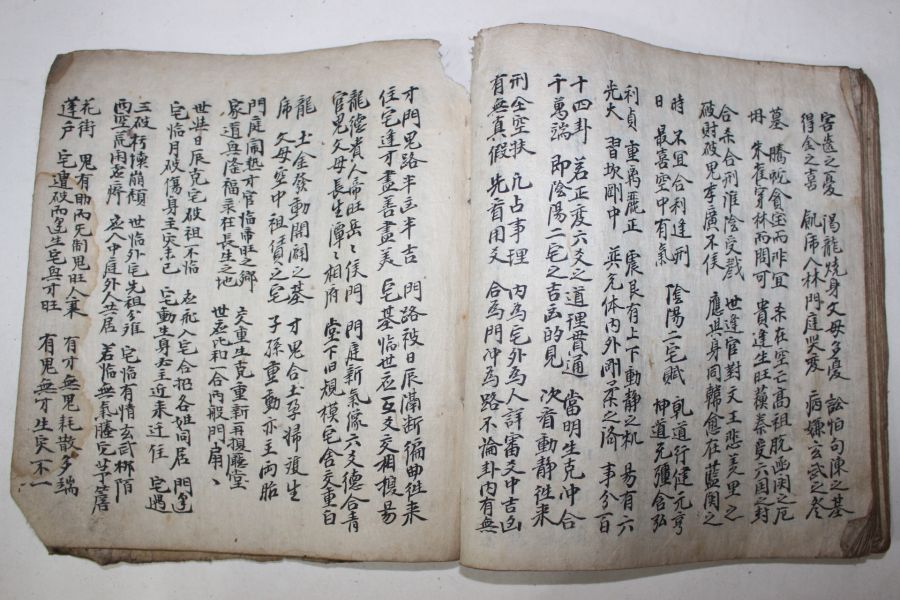 害遠之憂 渴龍燒身父母多憂 訟怕句陳之基
得金之喜 飢席人林門庭哭变 病嫌玄武之
墓 騰蛇貪宝而昨宜 未在空亡高祖脫凾関之厄
毋 朱雀穿林而闹可 貴達生旺蘇秦受六国之封
合未合刑淮陰受戮 世逢官對文王悲羑里之
破財破鬼李廣不侯 應與身同韓愈在藍関之
時 不宜合利逢刑 陰陽二宅賦 乹道行健元亨
日 最喜空中有氣 坤道先彊含弘
利貞 重离麗正 震艮有上下動静之机 易有六
光大 習坎剛中 巽兌体内外剛柔之济 事分百
十四卦 若正变六爻之道理貫通 當明生克冲合
千萬端 即陰陽二宅之吉凶的見 次看動静徃来
刑全空扶 凡占事理 内為宅外為人詳審爻中吉凶
有無真假 先看用文 合為門冲為路不論卦内有無
才門鬼路半凶半吉 門路被日辰滿斷徧曲徃来
住宅逢才盡善盡美 宅基临世应互爻相授易
龍德貴人帝旺岳々侯門 門庭新氣像六爻德合青
官鬼父母長生潭々相府 堂下旧規模宅含交重白
龍 土金發動開闢之基 才鬼合土孕婦渡生
席 父母空中祖債之宅 子孫重動亦主兩胎
門庭闹熱才官临帝旺之鄉 交重生克重新再換廳堂
家道興隆福祿在長生之地 世应比和一合两般門扇
世與日辰克宅破祖不临 应飛入宅合扔各姓同居 門逢
宅临月破傷身主灾未已 宅動生身巫主近来迁住 宅遇
三破朽揀崩傾 世临外宅先祖分離 宅临有情玄武梆陌
两空荒闲虗癠 应入中庭外人共居 若临無氣廰宅茅居
花街 鬼有助而无制鬼旺人衰 有才無鬼耗散多端
蓬戶 宅遭破而逢生宅興才旺 有鬼無才生灾不一